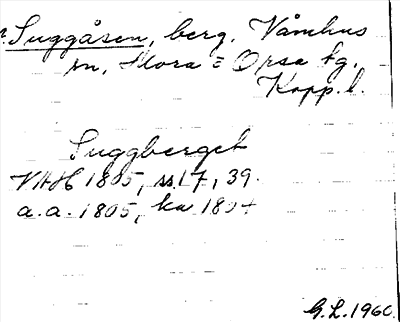 Suggåsen, berg, Våmhus
sn, Mora o Orsa tg,
Kopp. l.
Suggberget
VAH 1805, s. 17, 39.
a.a. 1805, ka 1804
G.L. 1960.